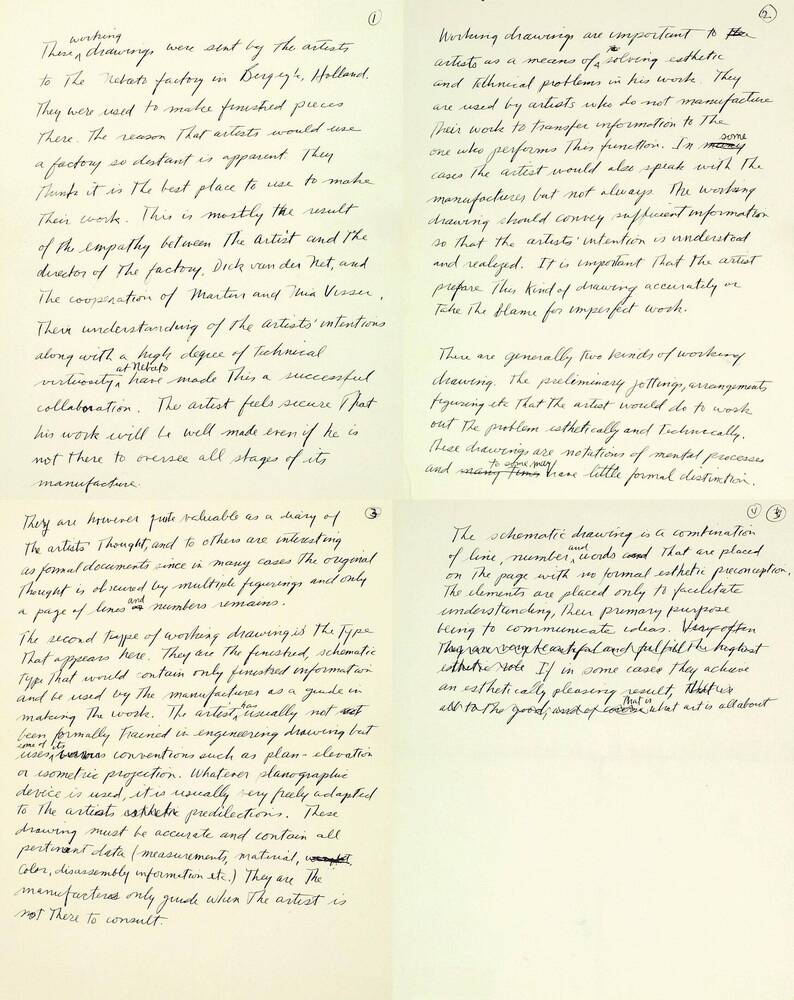 ①
working
These ^ drawings were sent by the artists
to the Nebato factory in Bergeyk, Holland.
They were used to make finished pieces
There. The reason that artists would use
a factory so distant is apparent. They
think it is the best place to use to make
their work. This is mostly the result
of the empathy between the artist and the
director of the factory, Dick van der Net, and
the cooperation of Martin and Mia Visser.
Their understanding of the artists' intentions
along with a high degree of technical
at Nebato
virtuosity ^ have made this a successful
collaboration. The artist feels secure that
his work will be well made even if he is
not there to oversee all stages of its
manufacture.
②
Working drawings are important to the
artists as a means of ^ the solving esthetic
and technical problems in his work. They
are used by artists who do not manufacture
their work to transfer information to the
some
one who performs this function. In many
cases the artist would also speak with the
manufactures but not always. The working
drawing should convey sufficient information
so that the artists' intention is understood
and realized. It is important that the artist
prepare this kind of drawing accurately or
take the blame for imperfect work.
There are generally two kinds of working
drawing. The preliminary jottings, arrangements
figuring etc that the artist would do to work
out the problem esthetically and technically.
These drawings are notations of mental processes
to some may
and many times have little formal distinction.
③
They are however quite valuable as a diary of
the artists thought, and to others are interesting
as formal documents since in many cases the original
thought is obscured by multiple figurings and only
and
a page of lines or numbers remains.
The second type of working drawing is the type
that appears here. They are the finished, schematic
type that would contain only finished information
and be used by the manufacturer as a guide in
has
making the work. The artist ^ usually not
been formally trained in engineering drawing but
some of its
uses ^ various conventions such as plan-elevation
or isometric projection. Whatever planographic
device is used, it is usually very freely adapted
to the artists esthetic predilections. These
drawing must be accurate and contain all
pertinent data (measurements, material,
color, disassembly information etc.) They are the
manufacturers only guide when the artist is
not there to consult.
4 ③
The schematic drawing is a combination
and
of line, number, ^ words and that are placed
on the page with no formal esthetic preconception.
The elements are placed only to facilitate
understanding, their primary purpose
being to communicate ideas. Very often
They are very beautiful and fulfill the highest
esthetic role If in some cases they achieve
an esthetically pleasing result, that is
That is
all to the good, and of course ^ what art is all about